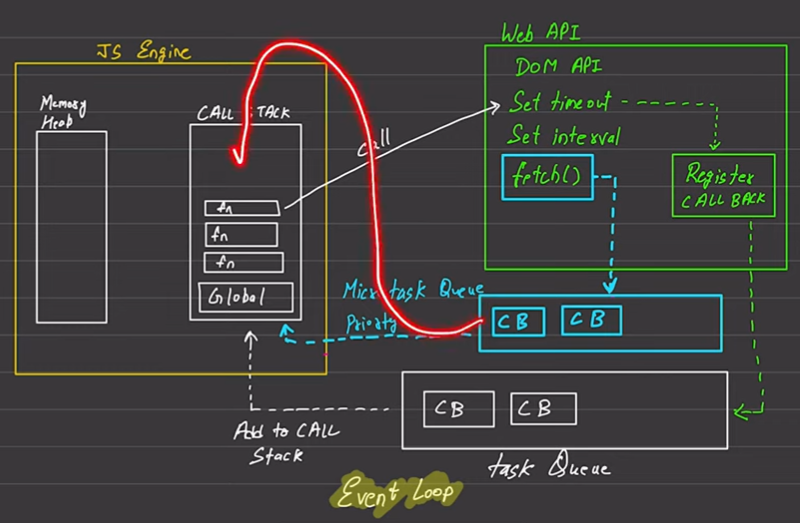 JS Engine
Memory
Heab
CALL STACK
fn
fn
fn
Global
call
Web API
DOM API
Set timeout
Set interval
fetch()
Register
CALL BACK
Micro task Queue
Priority
CB
CB
CB
CB
Add to CALL
Stack
task Queue
Event Loop